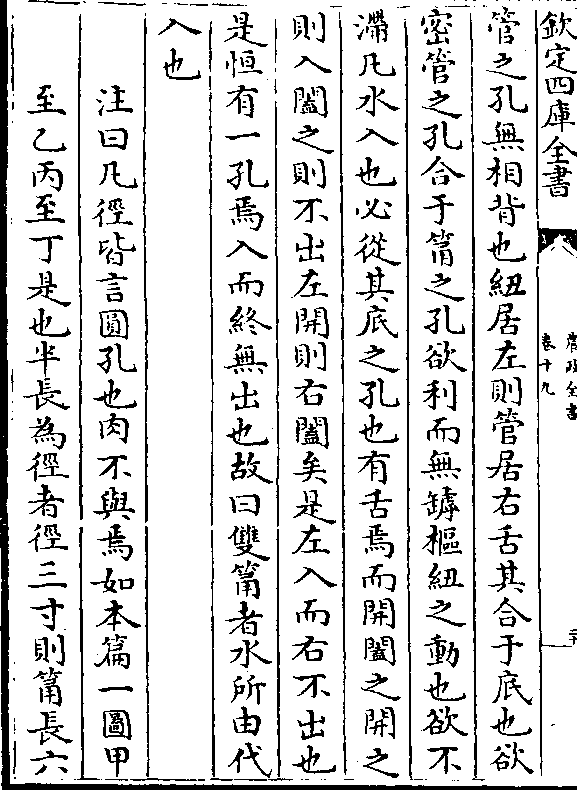 欽定四庫全書
農政全書
卷十九
管之孔無相背也紐居左則管居右舌其合于底也欲
密管之孔合于筩之孔欲利而無罅樞紐之動也欲不
滯凡水入也必從其底之孔也有舌焉而開闔之開之
則入闔之則不出左開則右闔矣是左入而右不出也
是恒有一孔焉入而終無出也故曰雙筩者水所由代
入也
注曰凡徑皆言圓孔也肉不與焉如本篇一圖甲
至乙丙至丁是也半長為徑者徑三寸則筩長六